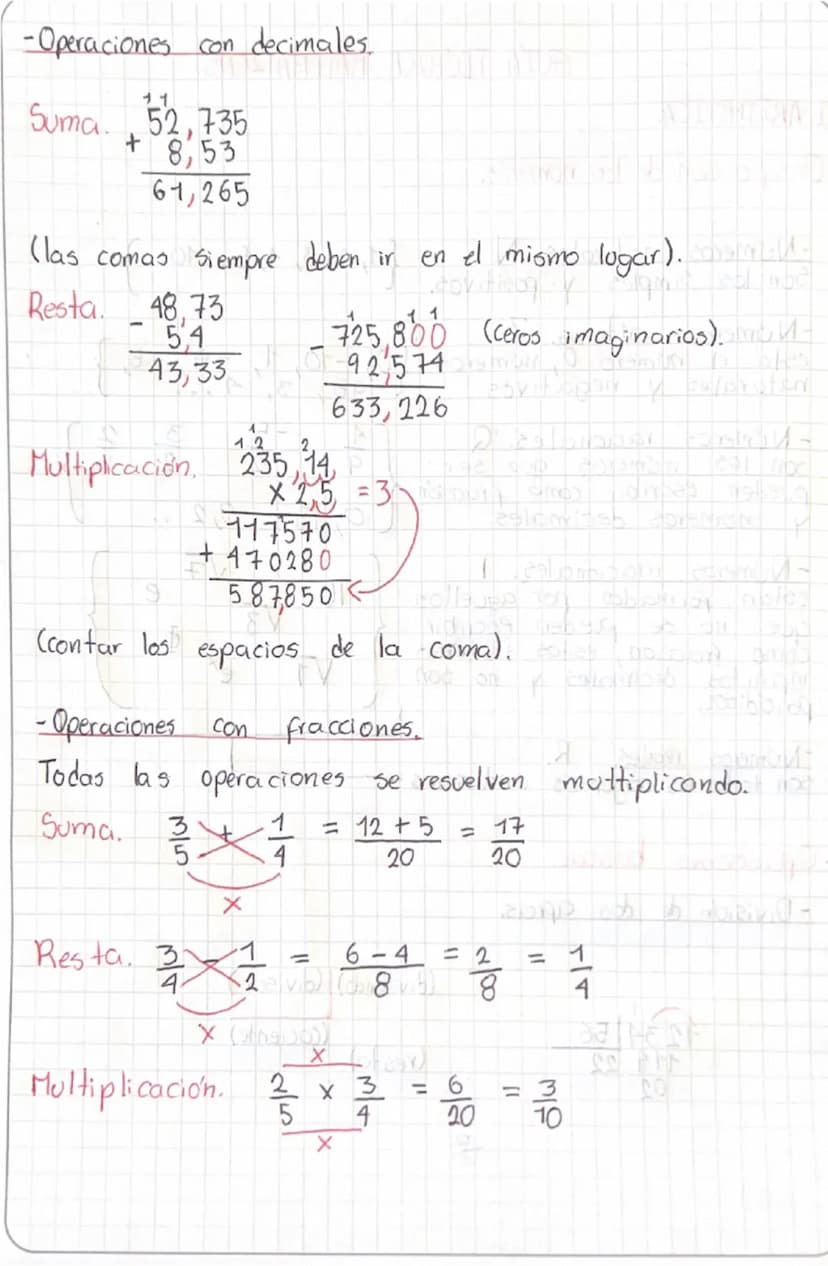 -Operaciones con decimales.
Suma.
1 1
52,735
+ 8,53
61,265
(las comas siempre deben ir en el mismo lugar).
Resta.
48,73
- 5,4
43,33
1 1 1
- 725,800 (ceros imaginarios).
92,574
633,226
Multiplicación.
1
1 2 2
235,14
x 2,5 = 3
117570
+ 470280
587,850
(contar los espacios de la coma).
-Operaciones con fracciones.
Todas las operaciones se resuelven multiplicando.
Suma. 3/5 + 1/4 = 12 + 5/20 = 17/20
x
Resta. 3/4 - 1/2 = 6 - 4/8 = 2/8 = 1/4
x
x
Multiplicación. 2/5 x 3/4 = 6/20 = 3/10
x